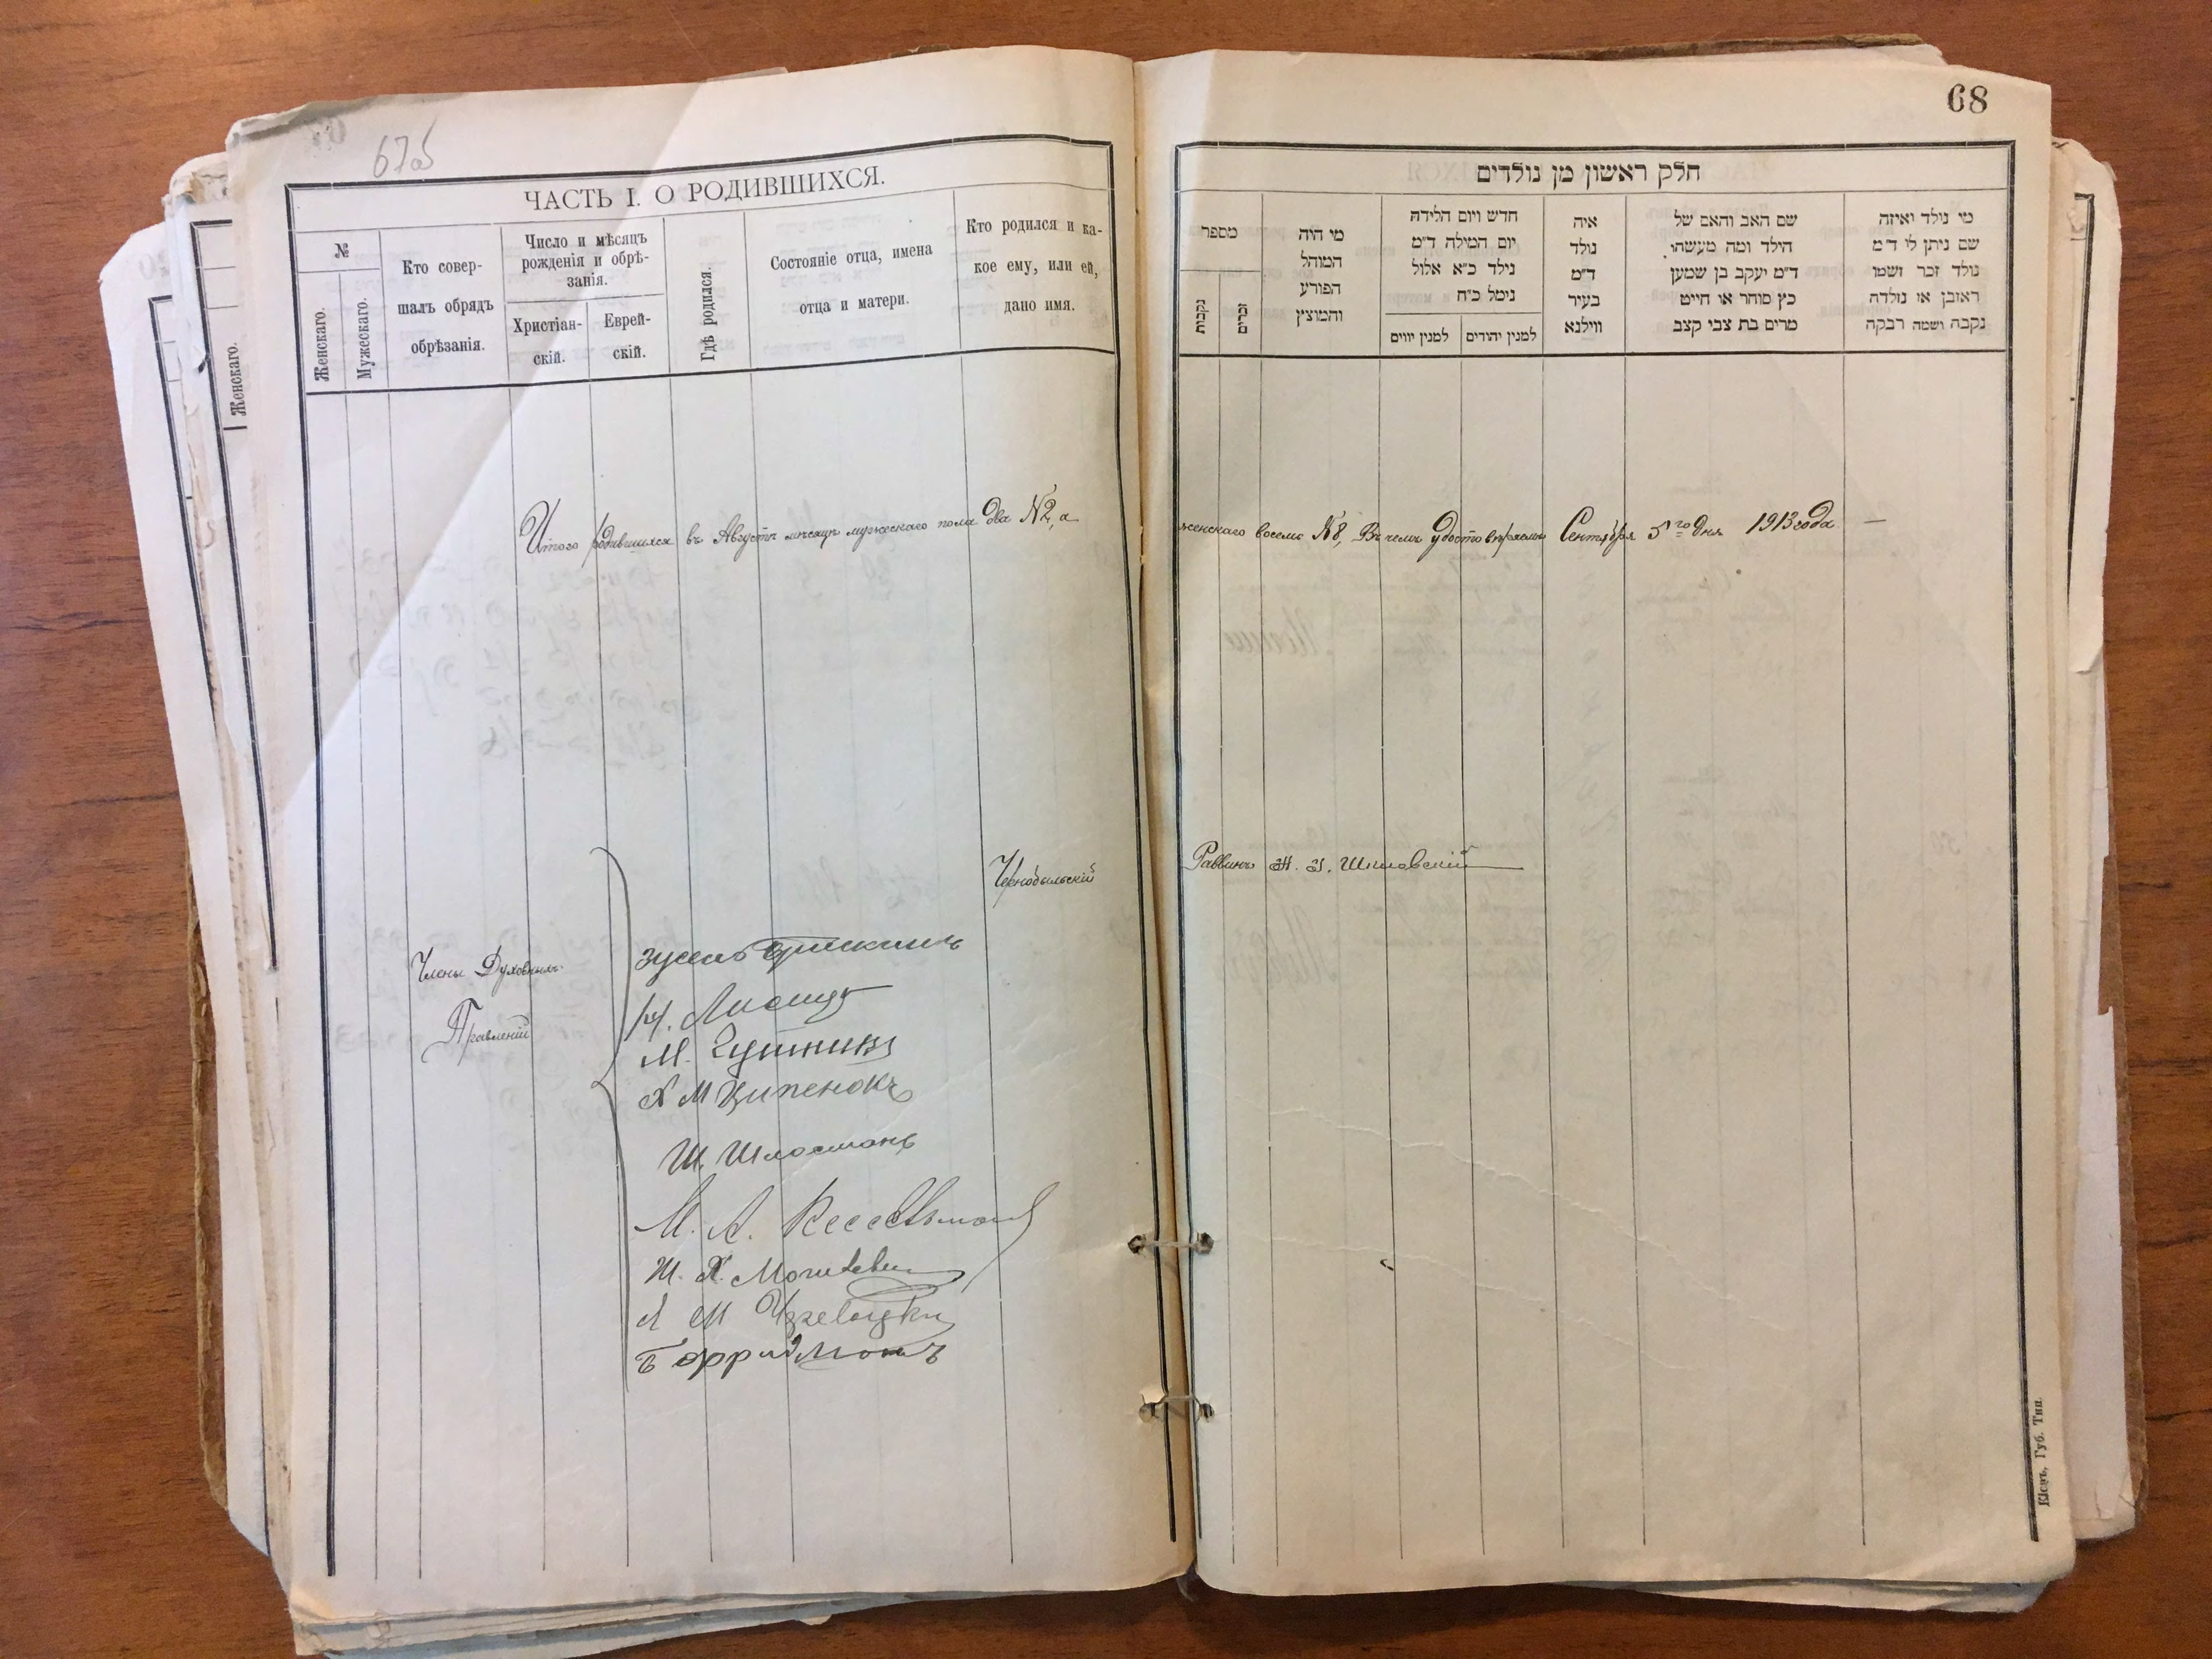 67об
ЧАСТЬ I. О РОДИВШИХСЯ.
№
Женскаго.
Мужескаго.
Кто совер-
шалъ обрядъ
обрѣзанія.
Число и мѣсяцъ
рожденія и обрѣ-
занія.
Христіан-
скій.
Еврей-
скій.
Гдѣ родился.
Состояніе отца, имена
отца и матери.
Кто родился и ка-
кое ему, или ей,
дано имя.
Женскаго.
Итого родившихся въ Августѣ мѣсяцѣ мужескаго пола два №2, а
Чернобыльскій
Члены Духовныхъ
Правленій
М.
Х М Ципенокъ
Ш. Шлосманъ
М. А.
Ш. Х.
Л М
Б Фридманъ
68
חלק ראשון מן נולדים
מספר
נקבות
זכרים
מי היה
המוהל
הפורע
והמוצץ
חדש ויום הלידה
יום המילה ד״מ
נילד כ״א אלול
נימל כ״ח
למנין יווים
למנין יהודים
איה
נולד
ד״מ
בעיר
ווילנא
שם האב והאם של
הילד ומה מעשהו
ד״מ יעקב בן שמען
כץ סוחר או חייט
מרים בת צבי קצב
מי נולד ואיזה
שם ניתן לו ד״מ
נולד זכר ושמו
ראובן או נולדה
נקבה ושמה רבקה
женскаго восемь №8, Въ чемъ удостовѣряемъ Сентября 5го дня 1913 года. —
Раввинъ
Кіевъ, Губ. Тип.